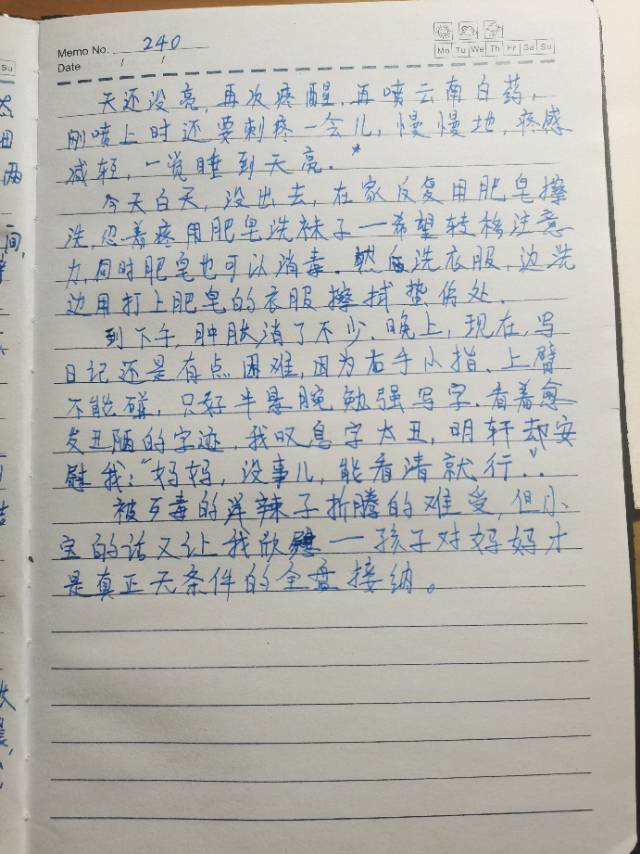 Memo No. 240
Date / /
Mo Tu We Th Fr Sa Su
天还没亮,再次疼醒,再喷云南白药,
刚喷上时还要刺疼一会儿,慢慢地,疼感
减轻,一觉睡到天亮.
今天白天,没出去,在家反复用肥皂擦
洗,忍着疼用肥皂洗袜子—希望转移注意
力,同时肥皂也可以消毒.然后洗衣服,边洗
边用打上肥皂的衣服擦拭蛰伤处.
到下午,肿胀消了不少.晚上,现在,写
日记还是有点困难,因为右手小指、上臂
不能碰,只好半悬腕勉强写字,看着愈
发丑陋的字迹,我叹息字太丑,明轩却安
慰我:“妈妈,没事儿,能看清就行.”
被歹毒的洋辣子折腾的难受,但小
宝的话又让我欣慰—孩子对妈妈才
是真正无条件的全盘接纳。
Su